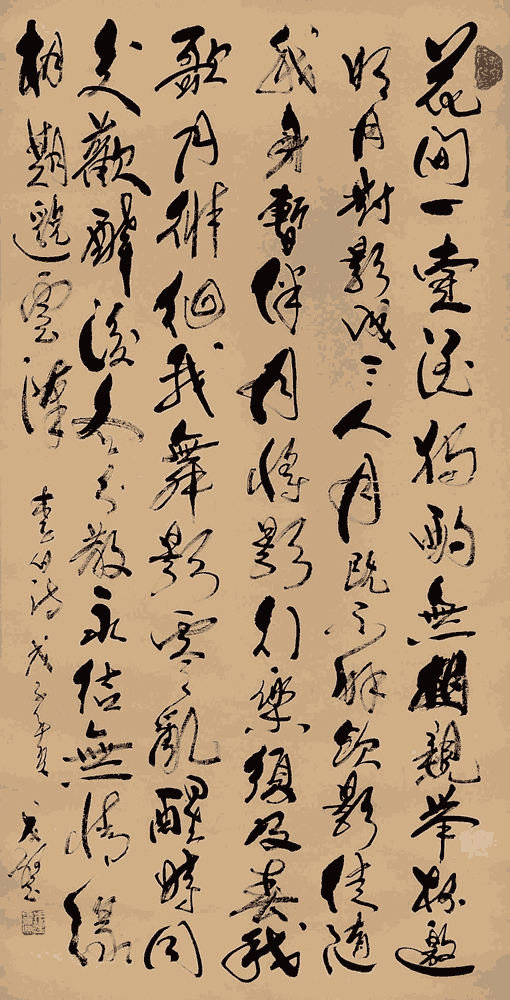 花間一壺酒獨酌無相親舉杯邀
明月對影成三人月既不解飲影徒隨
我身暫伴月將影行樂須及春我
歌月徘徊我舞影零亂醒時同
交歡醉後各分散永結無情緣
相期邈雲漢
李白詩戊子年夏